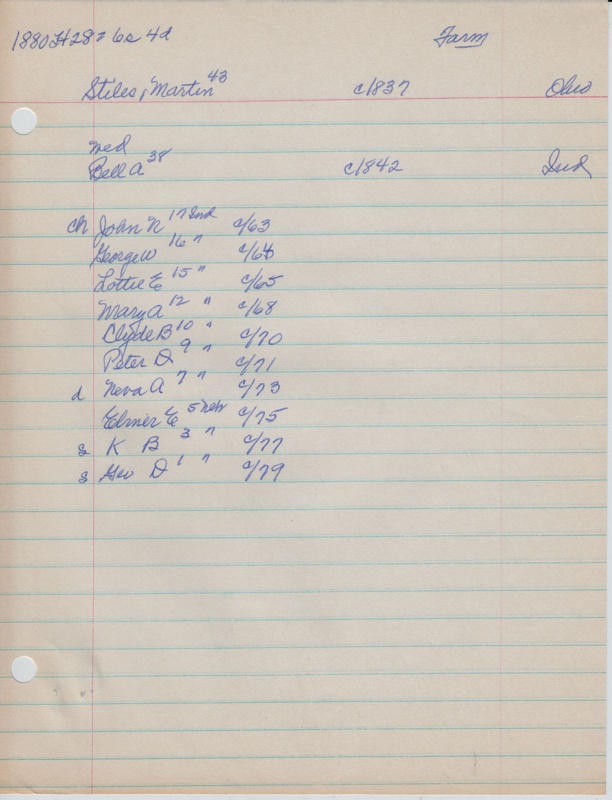 1880 H282 6s 4d Farm
Stiles, Martin 43 c/1837 Ohio
med
Bell A 38 c/1842 Ind
ch John N 17 Ind c/63
George W 16 " c/64
Lottie E 15 " c/65
Mary A 12 " c/68
Clyde B 10 " c/70
Peter D 9 " c/71
d Neva A 7 " c/73
Elmer E 5 Neb c/75
s K B 3 " c/77
s Geo D 1 " c/79